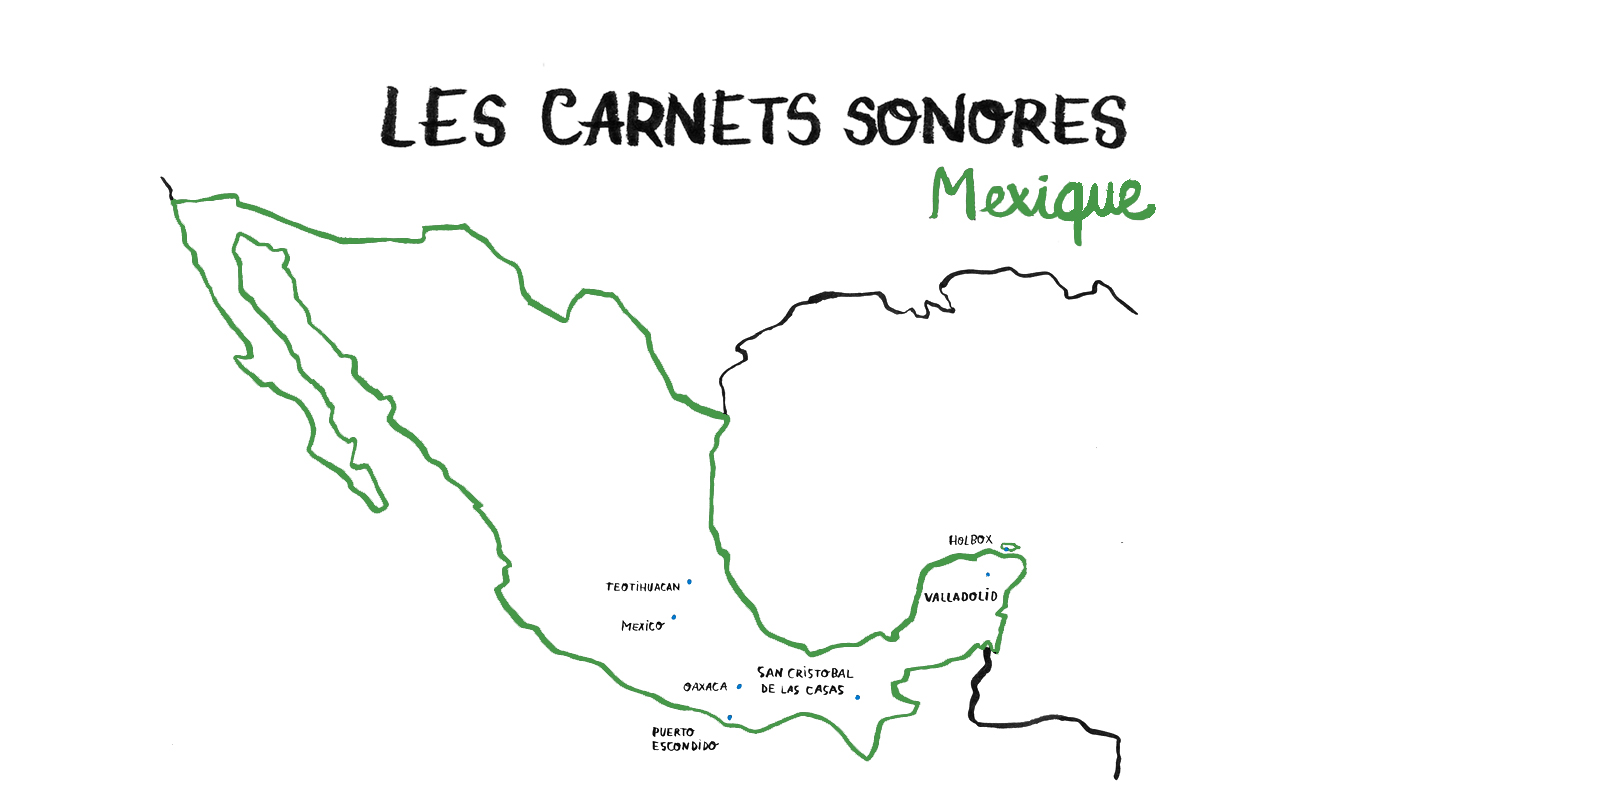 LES CARNETS SONORES
Mexique
HOLBOX
VALLADOLID
TEOTIHUACAN
MEXICO
SAN CRISTOBAL
DE LAS CASAS
OAXACA
PUERTO
ESCONDIDO